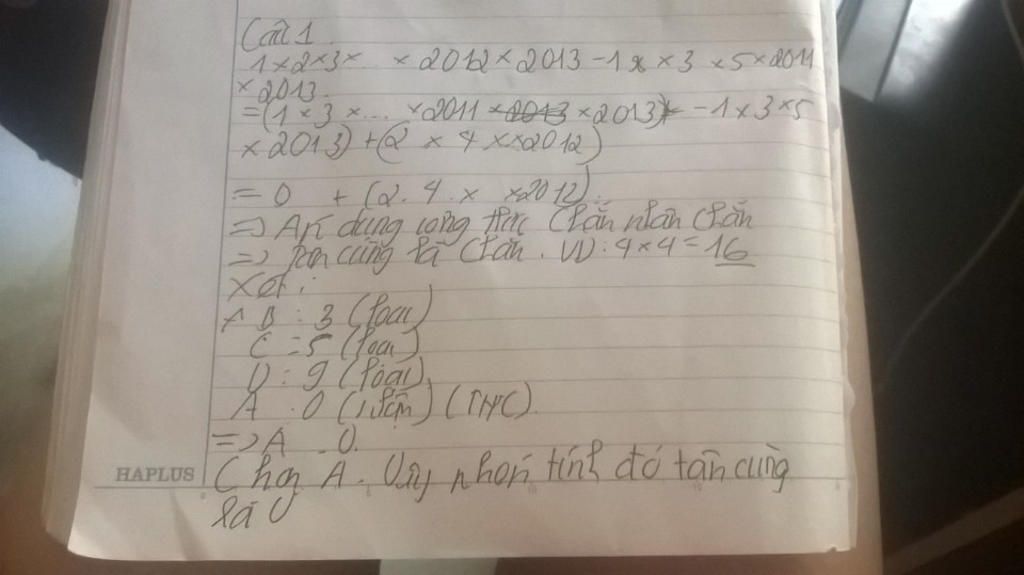 Câu 1
1 × 2 × 3 × ... × 2012 × 2013 - 1 × × 3 × 5 × 2011
× 2013.
= (1 × 3 × ... × 2011 × 2013 × 2013) - 1 × 3 × 5
× 2013) + (2 × 4 × × 2012)
= 0 + (2. 4. × × 2012).
=> Áp dụng công thức Chẵn nhân chẵn
=> tận cùng là chẵn. VD: 4 × 4 = 16
Xét:
B : 3 (loại)
C = 5 (loại)
D : 9 (loại)
A : 0 (nhận)
=> A 0.
HAPLUS
Chọn A. Vậy phép tính đó tận cùng
là 0